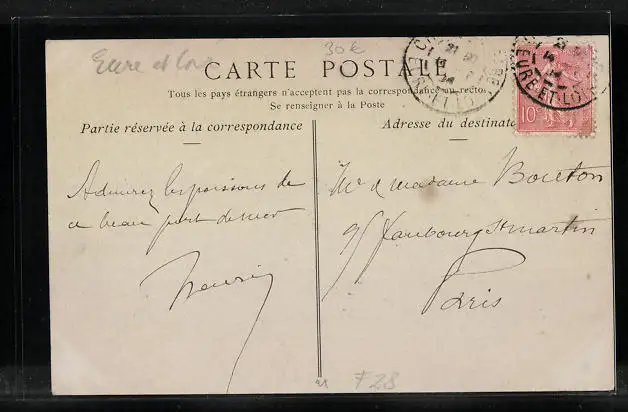 Eure et Loir
30€
CARTE POSTALE
Tous les pays étrangers n'acceptent pas la correspondance au recto
Se renseigner à la Poste
Partie réservée à la correspondance
Adresse du destinata
10c
EURE-ET-LOI
Admirez les poissons de
ce beau port de mer
Henri
Mr & madame Bouton
9 Faubourg St martin
Paris
F28